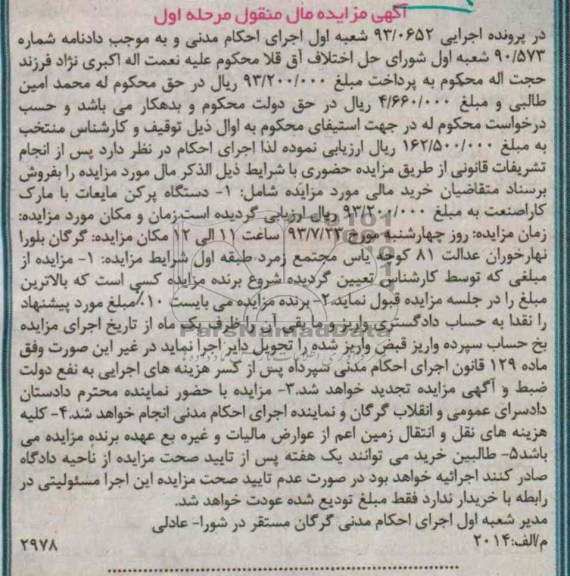 آگهی مزایده مال منقول مرحله اول
در پرونده اجرایی ۹۳/۰۶۵۲ شعبه اول اجرای احکام مدنی و به موجب دادنامه شماره
۹۰/۵۷۳ شعبه اول شورای حل اختلاف آق قلا محکوم علیه نعمت اله اکبری نژاد فرزند
حجت اله محکوم به پرداخت مبلغ ۹۳/۲۰۰/۰۰۰ ریال در حق محکوم له محمد امین
طالبی و مبلغ ۴/۶۶۰/۰۰۰ ریال در حق دولت محکوم و بدهکار می باشد و حسب
درخواست محکوم له در جهت استیفای محکوم به اوال ذیل توقیف و کارشناس منتخب
به مبلغ ۱۶۲/۵۰۰/۰۰۰ ریال ارزیابی نموده لذا اجرای احکام در نظر دارد پس از انجام
تشریفات قانونی از طریق مزایده حضوری با شرایط ذیل الذکر مال مورد مزایده را بفروش
برسناد متقاضیان خرید مالی مورد مزایده شامل: ۱- دستگاه پرکن مایعات با مارک
کاراصنعت به مبلغ ۹۳/۲۰۰/۰۰۰ ریال ارزیابی گردیده است.زمان و مکان مورد مزایده:
زمان مزایده: روز چهارشنبه مورخ ۹۳/۷/۲۳ ساعت ۱۱ الی ۱۲ مکان مزایده: گرگان بلورا
نهارخوران عدالت ۸۱ کوچه یاس مجتمع زمرد طبقه اول شرایط مزایده: ۱- مزایده از
مبلغی که توسط کارشناس تعیین گردیده شروع برنده مزایده کسی است که بالاترین
مبلغ را در جلسه مزایده قبول نماید۲- برنده مزایده می بایست ۱۰٪ مبلغ مورد پیشنهاد
را نقدا به حساب دادگستری واریز و ما بقی آن را ظرف یک ماه از تاریخ اجرای مزایده
بخ حساب سپرده واریز قبض واریز شده را تحویل دایر اجرا نماید در غیر این صورت وفق
ماده ۱۲۹ قانون اجرای احکام مدنی سپرداه پس از کسر هزینه های اجرایی به نفع دولت
ضبط و آگهی مزایده تجدید خواهد شد.۳- مزایده با حضور نماینده محترم دادستان
دادسرای عمومی و انقلاب گرگان و نماینده اجرای احکام مدنی انجام خواهد شد.۴- کلیه
هزینه های نقل و انتقال زمین اعم از عوارض مالیات و غیره بع عهده برنده مزایده می
باشد۵- طالبین خرید می توانند یک هفته پس از تایید صحت مزایده از ناحیه دادگاه
صادر کنند اجرائیه خواهد بود در صورت عدم تایید صحت مزایده این اجرا مسئولیتی در
رابطه با خریدار ندارد فقط مبلغ تودیع شده عودت خواهد شد.
مدیر شعبه اول اجرای احکام مدنی گرگان مستقر در شورا- عادلی
م/الف:۲۰۱۴ ۲۹۷۸